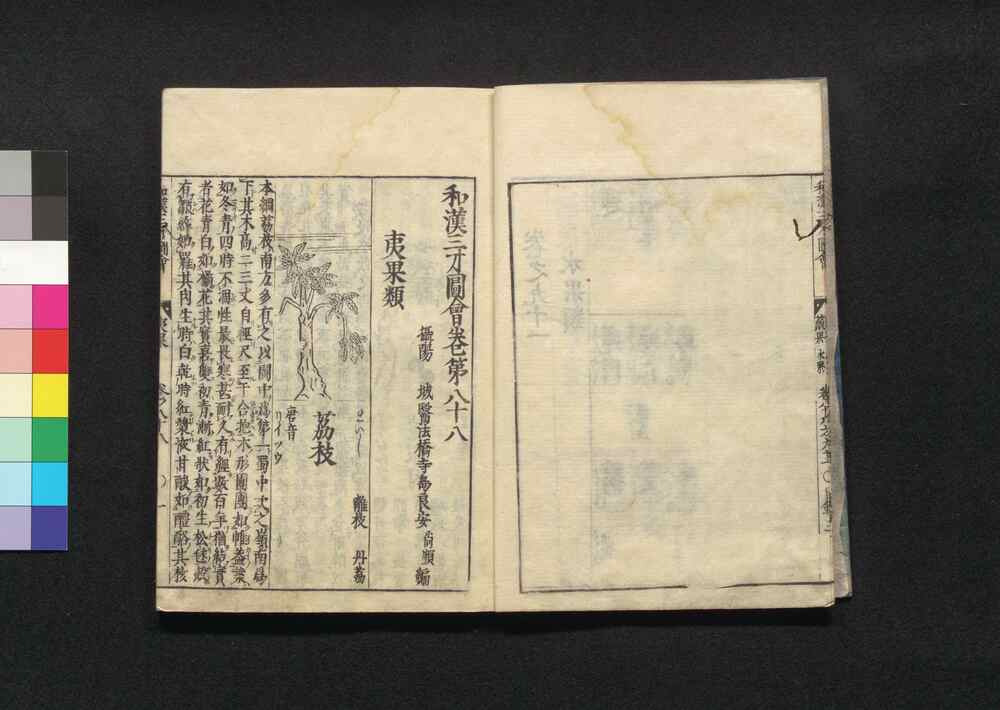 和漢三才圖會卷第八十八
攝陽 城醫法橋寺島良安尚順編
夷果類
離枝 丹荔
れいし
荔枝
唐音
リイツウ
本綱荔枝南方多有之以閩中爲第一蜀中次之嶺南爲
下其木高二三丈自徑尺至于合抱木形團團如帷蓋葉
如冬青四時不凋性最畏寒甚耐久有經數百年猶結實
者花青白如橘花其實喜雙初青漸紅狀如初生松毬殼
其肉生時白乾時紅漿液甘酸如醴酪其核